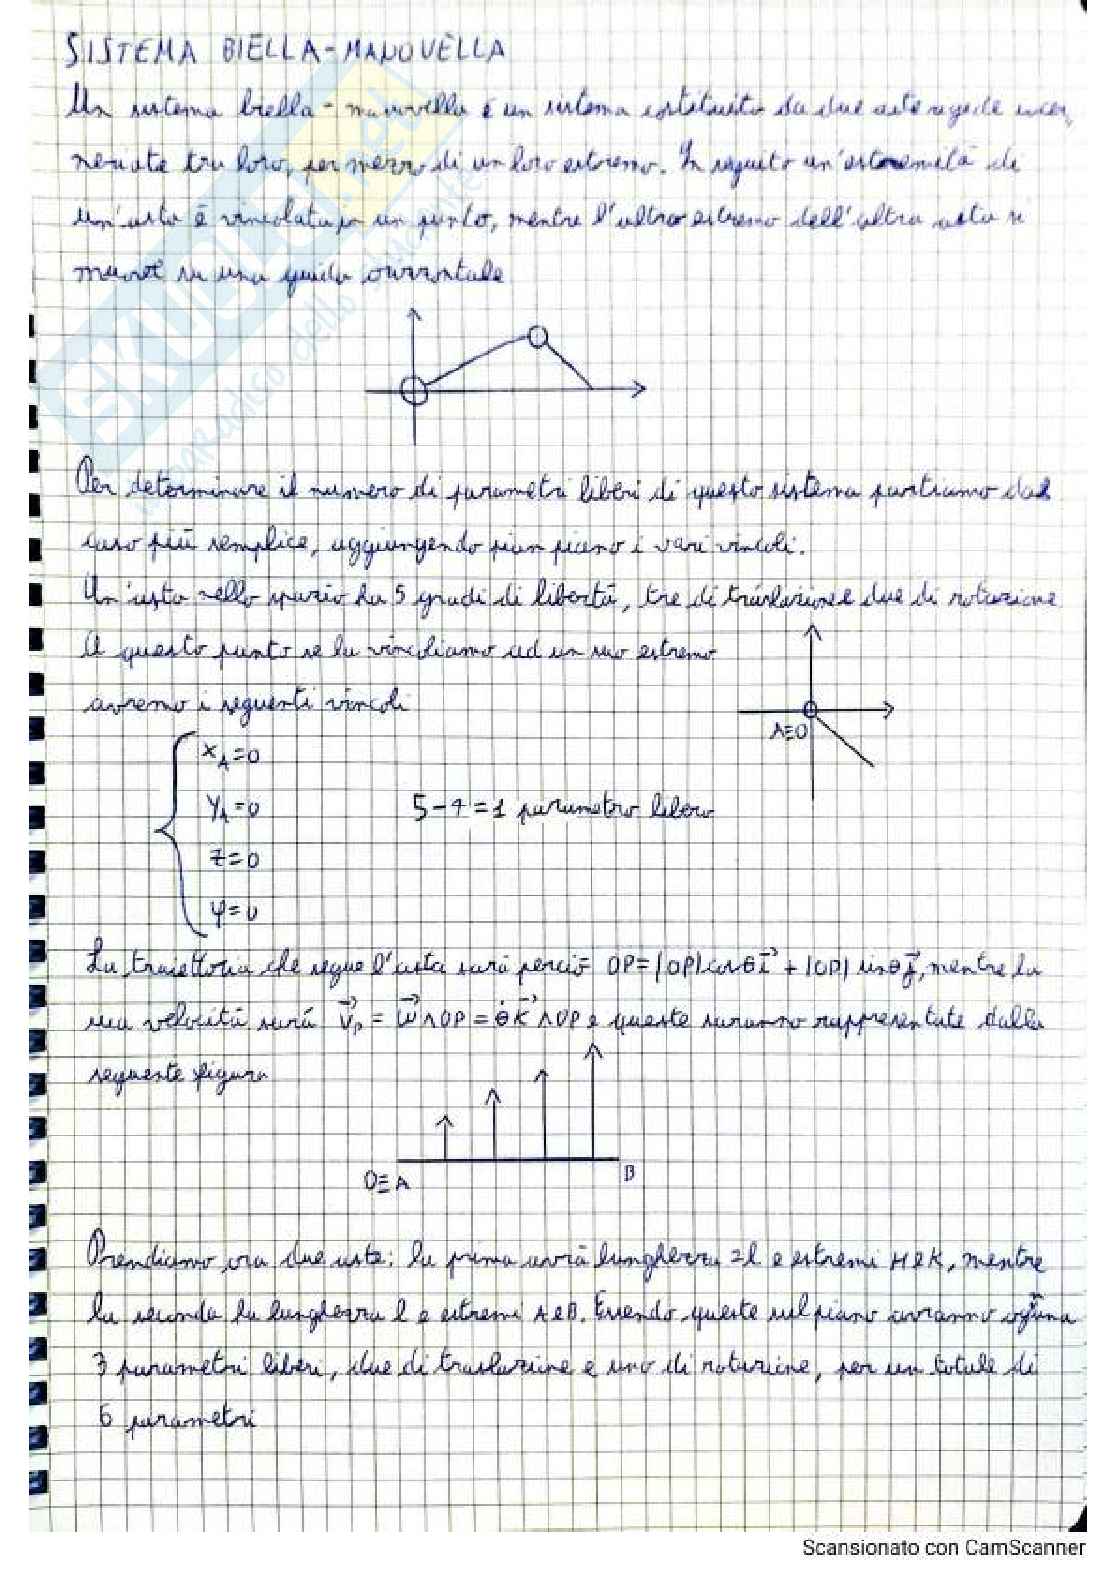 SISTEMA BIELLA-MANOVELLA
Un sistema biella-manovella è un sistema costituito da due aste rigide incer,
nerate tra loro, per mezzo di un loro estremo. In seguito un'estremità di
un'asta è vincolata in un punto, mentre l'altro estremo dell'altra asta si
muove su una guida orizzontale
Per determinare il numero di parametri liberi di questo sistema partiamo dal
caso più semplice, aggiungendo pian piano i vari vincoli.
Un'asta nello spazio ha 5 gradi di libertà, tre di traslazione e due di rotazione
A questo punto se la vincoliamo ad un suo estremo
avremo i seguenti vincoli
A≡O
x_A=0
y_A=0
5-4=1 parametro libero
z=0
φ=0
La traiettoria che segue l'asta sarà perciò OP=|OP|cosθ i⃗ + |OP| sinθ j⃗, mentre la
sua velocità sarà v⃗_P = ω⃗ ∧ OP = θ̇ k⃗ ∧ OP e queste saranno rappresentate dalla
seguente figura
O≡A
B
Prendiamo ora due aste: la prima avrà lunghezza 2l e estremi H e K, mentre
la seconda ha lunghezza l e estremi A e B. Essendo queste sul piano avranno ognuna
3 parametri liberi, due di traslazione e uno di rotazione, per un totale di
6 parametri
SKUOLA.net
Scansionato con CamScanner